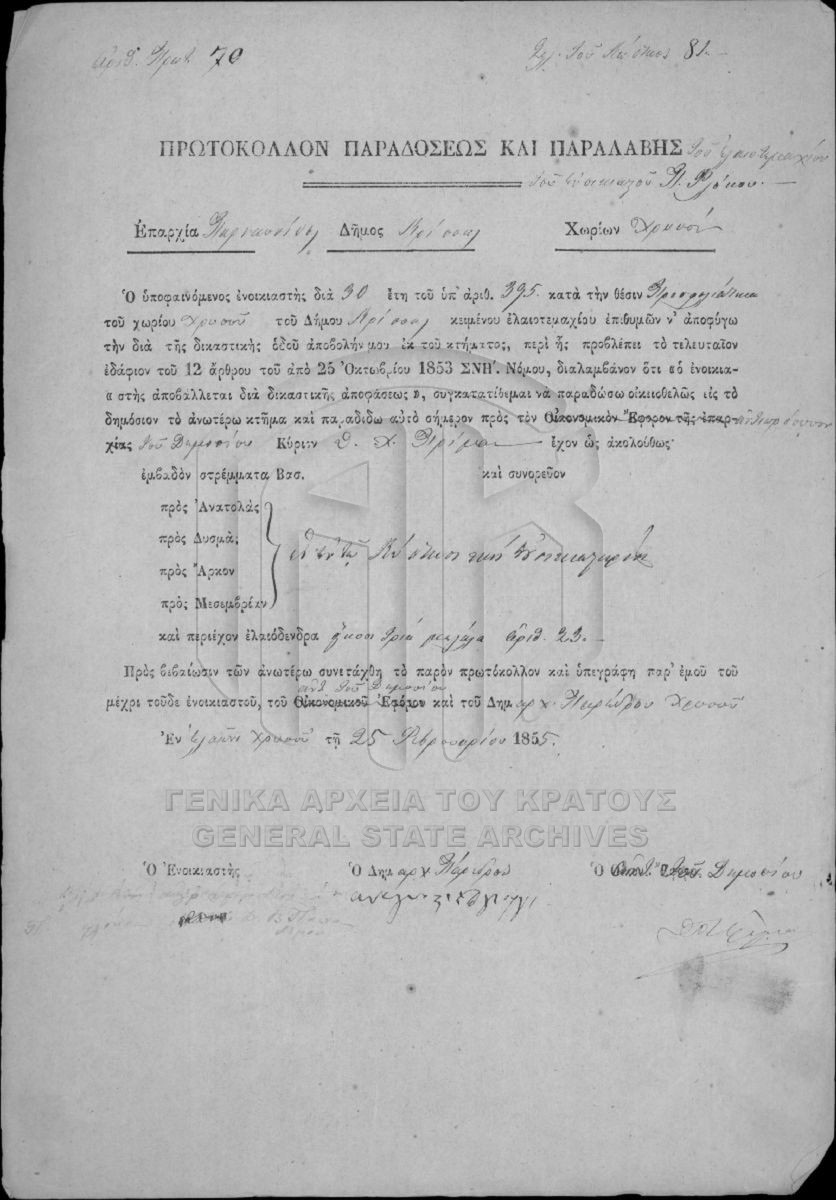 Ἀριθ. Πρωτ 70
Σελ. τοῦ Κώδικος 81.
ΠΡΩΤΟΚΟΛΛΟΝ ΠΑΡΑΔΟΣΕΩΣ ΚΑΙ ΠΑΡΑΛΑΒΗΣ τοῦ ἐλαιοτεμαχίου
τοῦ ἐνοικιαστοῦ
Ἐπαρχία Παρνασσίδος Δῆμος Κρίσσας Χωρίων Χρυσοῦ
Ὁ ὑποφαινόμενος ἐνοικιαστὴς διὰ 30 ἔτη τοῦ ὑπ' ἀριθ. 395. κατὰ τὴν θέσιν
τοῦ χωρίου Χρυσοῦ τοῦ Δήμου Κρίσσας κειμένου ἐλαιοτεμαχίου ἐπιθυμῶν ν' ἀποφύγω
τὴν διὰ τῆς δικαστικῆς ὁδοῦ ἀποβολήν μου ἐκ τοῦ κτήματος, περὶ ἧς προβλέπει τὸ τελευταῖον
ἐδάφιον τοῦ 12 ἄρθρου τοῦ ἀπὸ 25 Ὀκτωβρίου 1853 ΣΝΗ΄. Νόμου, διαλαμβάνον ὅτι «ὁ ἐνοικια-
«στὴς ἀποβάλλεται διὰ δικαστικῆς ἀποφάσεως», συγκατατίθεμαι νὰ παραδώσω οἰκιιοθελῶς εἰς τὸ
δημόσιον τὸ ἀνωτέρω κτῆμα καὶ παραδίδω αὐτὸ σήμερον πρὸς τὸν Οἰκονομικὸν Ἔφορον τῆς ἐπαρ-
χίας τοῦ Δημοσίου Κύριον ἔχον ὡς ἀκολούθως·
ἐμβαδὸν στρέμματα Βασ. καὶ συνορεῦον
πρὸς Ἀνατολὰς
πρὸς Δυσμὰς
πρὸς Ἄρκον
πρὸς Μεσεμβρίαν
καὶ περιέχον ἐλαιόδενδρα εἴκοσι τρία μεγάλα ἀριθ. 23.
Πρὸς βεβαίωσιν τῶν ἀνωτέρω συνετάχθη τὸ παρὸν πρωτόκολλον καὶ ὑπεγράφη παρ' ἐμοῦ τοῦ
ἀντ. τοῦ Δημοσίου
μέχρι τοῦδε ἐνοικιαστοῦ, τοῦ Οἰκονομικοῦ Ἐφόρου καὶ τοῦ Δημαρχ. Παρέδρου Χρυσοῦ
Ἐν Χρυσοῦ τῇ 25 Φεβρουαρίου 1855.
Ὁ Ἐνοικιαστὴς Ὁ Δημαρχ. Πάρεδρος Ὁ ἀντ. τοῦ Δημοσίου
ΓΕΝΙΚΑ ΑΡΧΕΙΑ ΤΟΥ ΚΡΑΤΟΥΣ
GENERAL STATE ARCHIVES